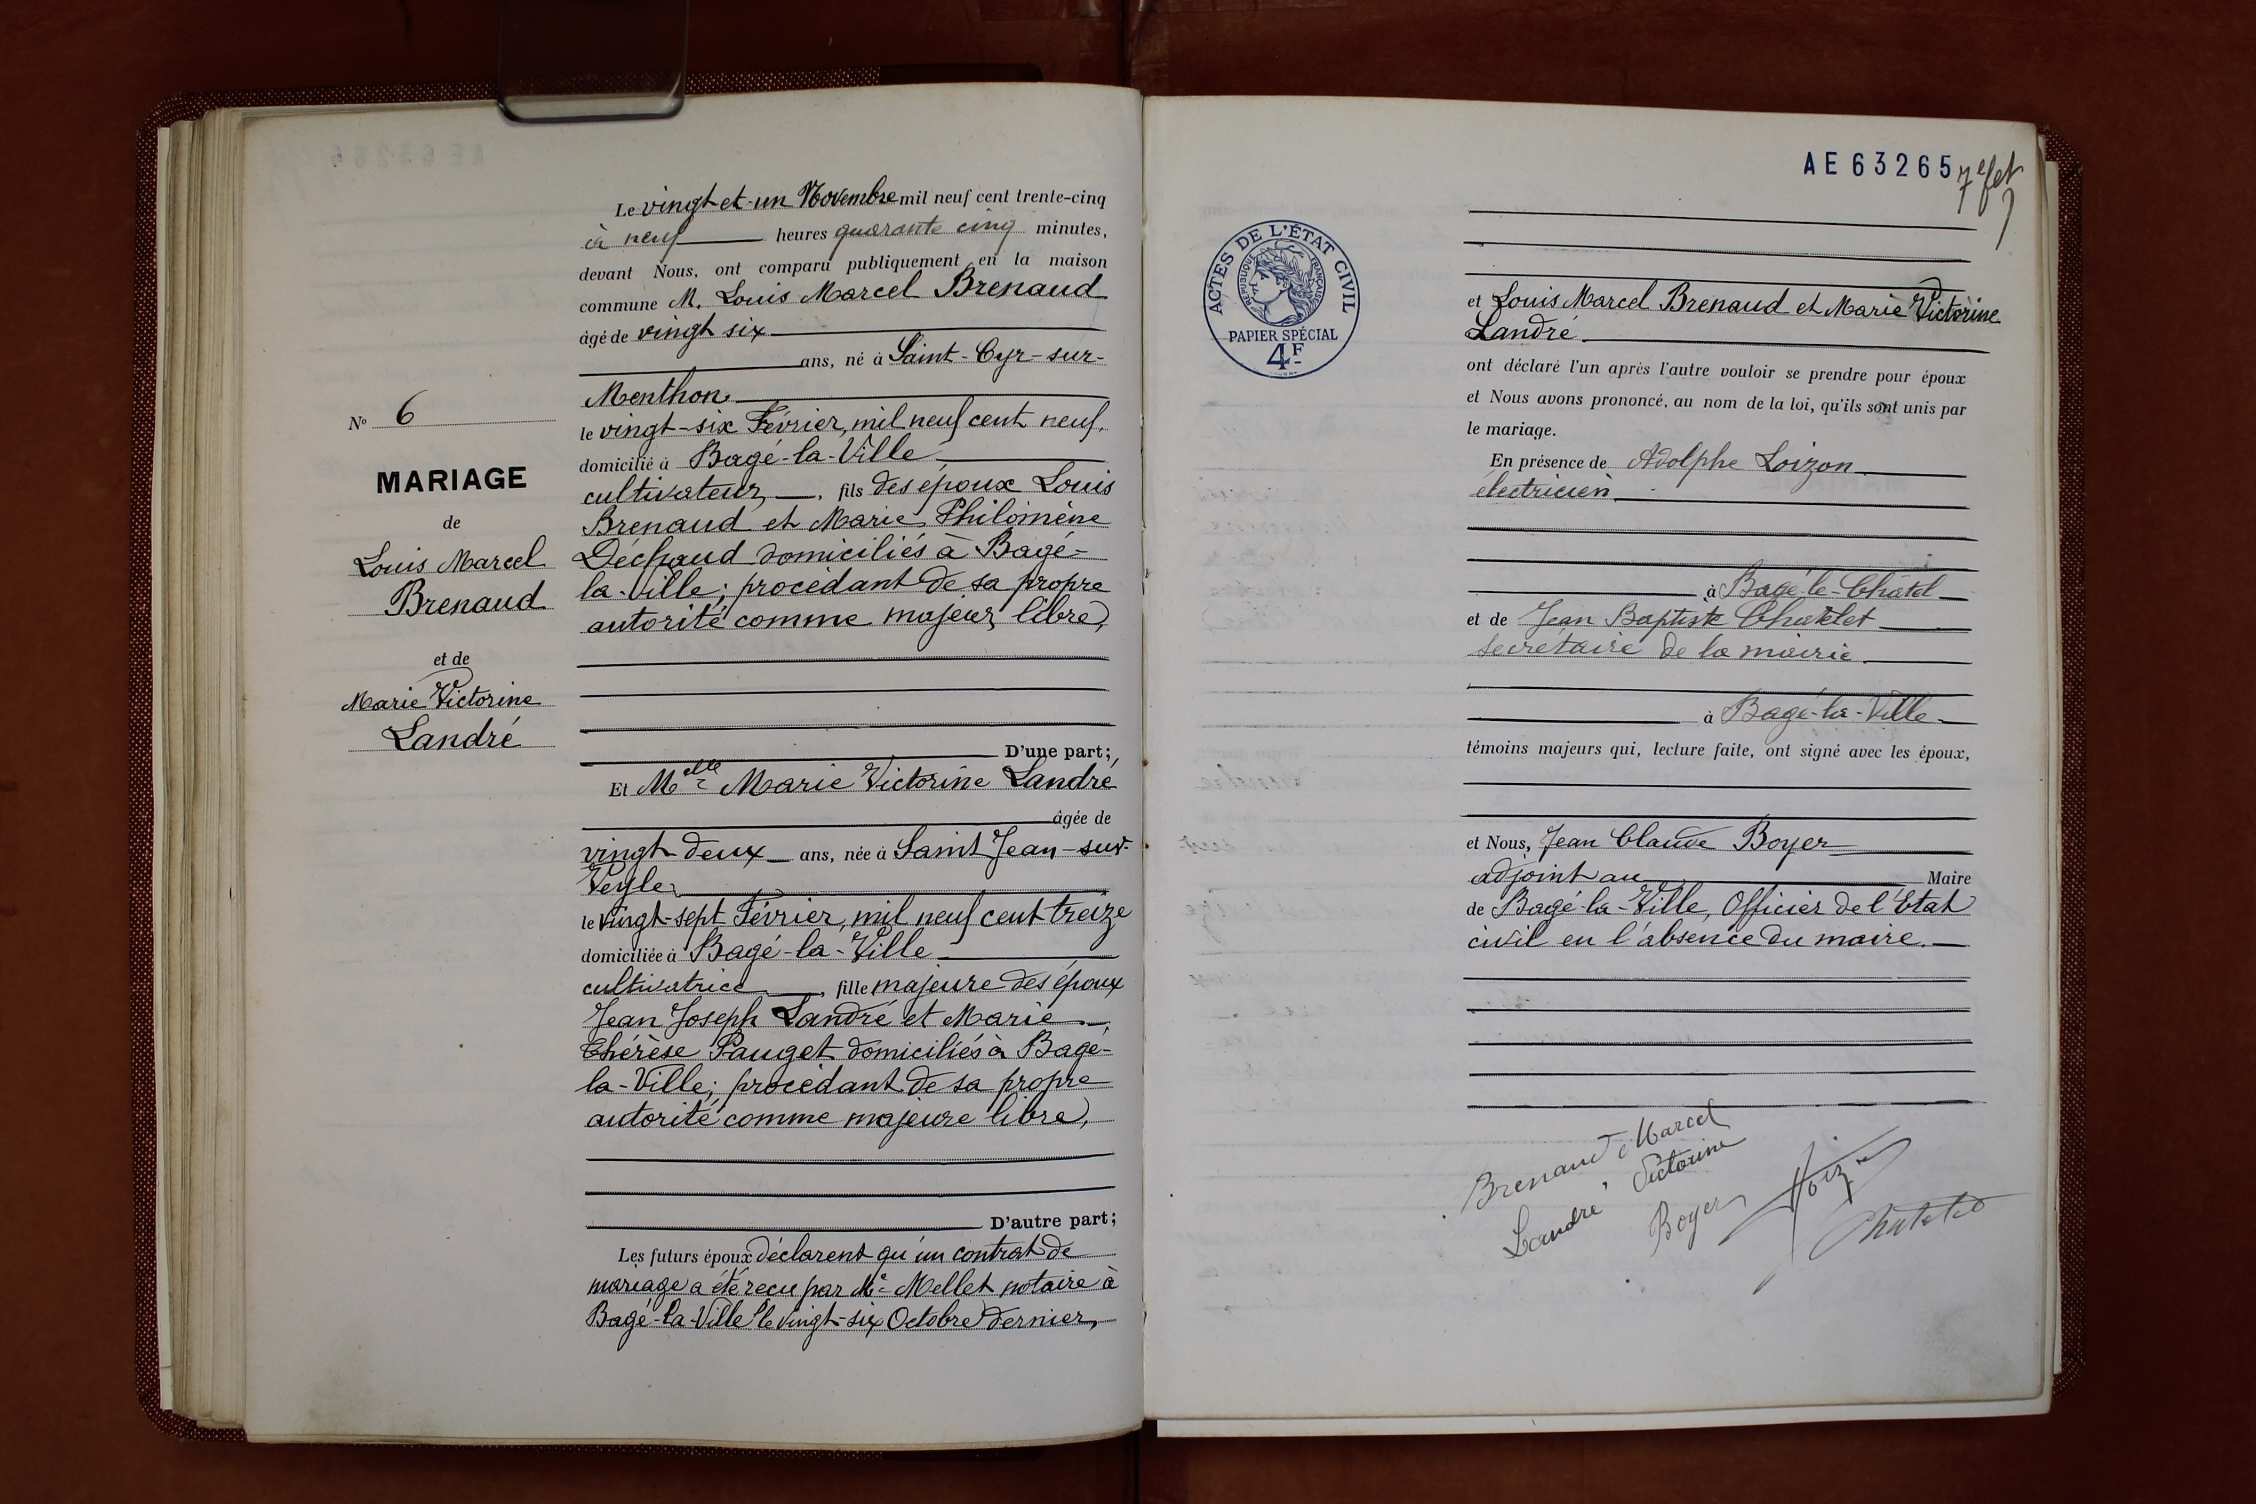 Le vingt et un Novembre mil neuf cent trente-cinq
à neuf heures quarante cinq minutes,
devant Nous, ont comparu publiquement en la maison
commune M. Louis Marcel Brenaud
âgé de vingt six
ans, né à Saint-Cyr-sur-
Menthon
le vingt-six Février, mil neuf cent neuf,
domicilié à Bagé-la-Ville
cultivateur, fils des époux Louis
Brenaud et Marie Philomène
Déchaud domiciliés à Bagé-
la-Ville; procédant de sa propre
autorité comme majeur libre,
D'une part;
Et Melle Marie Victorine Landré
âgée de
vingt deux ans, née à Saint Jean-sur-
Veyle
le vingt-sept Février, mil neuf cent treize
domiciliée à Bagé-la-Ville
cultivatrice, fille majeure des époux
Jean Joseph Landré et Marie
Thérèse Pauget domiciliés à Bagé-
la-Ville; procédant de sa propre
autorité comme majeure libre,
D'autre part;
Les futurs époux déclarent qu'un contrat de
mariage a été reçu par Me Mellet notaire à
Bagé-la-Ville le vingt-six Octobre dernier,
No 6
MARIAGE
de
Louis Marcel
Brenaud
et de
Marie Victorine
Landré
AE 63265
7e fet
ACTES DE L'ÉTAT CIVIL
RÉPUBLIQUE FRANÇAISE
PAPIER SPÉCIAL
4F
et Louis Marcel Brenaud et Marie Victorine
Landré
ont déclaré l'un après l'autre vouloir se prendre pour époux
et Nous avons prononcé, au nom de la loi, qu'ils sont unis par
le mariage.
En présence de Adolphe Loizon
électricien
à Bagé-le-Châtel
et de Jean Baptiste Chatelet
secrétaire de la mairie
à Bagé-la-Ville
témoins majeurs qui, lecture faite, ont signé avec les époux,
et Nous, Jean Claude Boyer
adjoint au Maire
de Bagé-la-Ville, Officier de l'Etat
civil en l'absence du maire.
Brenaud Marcel
Landré Victorine
Boyer